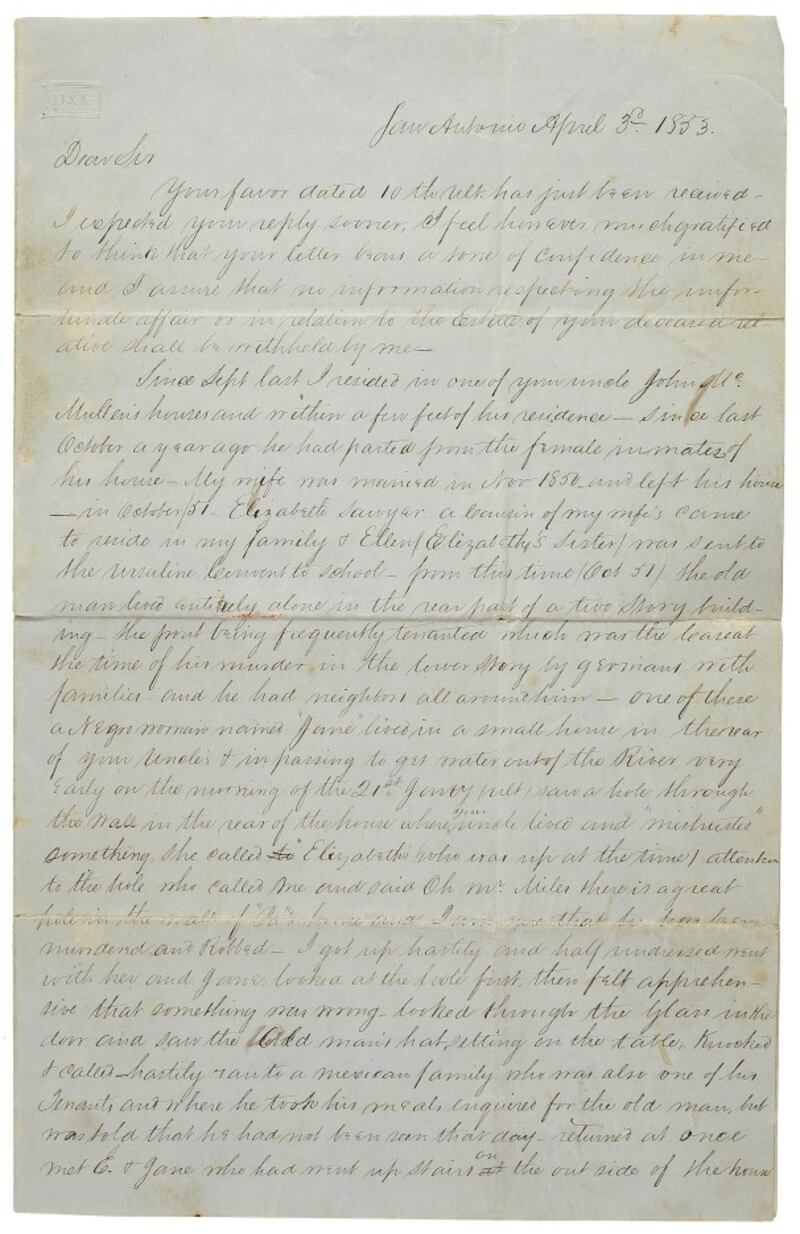 San Antonio April 3d. 1853.
Dear Sir
Your favor dated 10th ult. has just been received –
I expected your reply sooner, I feel however much gratified
to think that your letter bears a tone of confidence in me –
and I assure that no information respecting the unfor-
tunate affair or in relation to the Estate of your deceased rel-
ative shall be withheld by me –
Since Sept last I resided in one of your uncle John Mc.
Mullen's houses and within a few feet of his residence – since last
October a year ago he had parted from the female inmates of
his house – My wife was married in Nov 1850. and left his house
– in October/51 – Elizabeth Sawyer a cousin of my wife's came
to reside in my family & Ellen (Elizabeth's Sister) was sent to
the Ursuline Convent to school – from this time (Oct 51) the old
man lived entirely alone in the rear part of a two Story build-
ing – the front being frequently tenanted which was the case at
the time of his murder in the lower story by germans with
families and he had neighbors all around him – one of these
a Negro woman named "Jane" lived in a small house in the rear
of your Uncle's & in passing to get water out of the River very
early on the morning of the 21st Jany (ult) saw a hole through
the wall in the rear of the house where your uncle lived and "mistrusted"
something, she called to Elizabeths (who was up at the time) attention
to the hole who called me and said Oh Mr. Miles there is a great
hole in the wall of "Pa"s house and I am sure that he has been
murdered and Robbed – I got up hastily and half undressed went
with her and Jane, looked at the hole first, then felt apprehen-
sive that something was wrong – looked through the Glass in the
door and saw the Old man's hat, setting on the table, Knocked
& called – hastily ran to a mexican family who was also one of his
Tenants and where he took his meals enquired for the old man, but
was told that he had not been seen that day – returned at once
met E. & Jane who had went up stairs on at the out side of the house